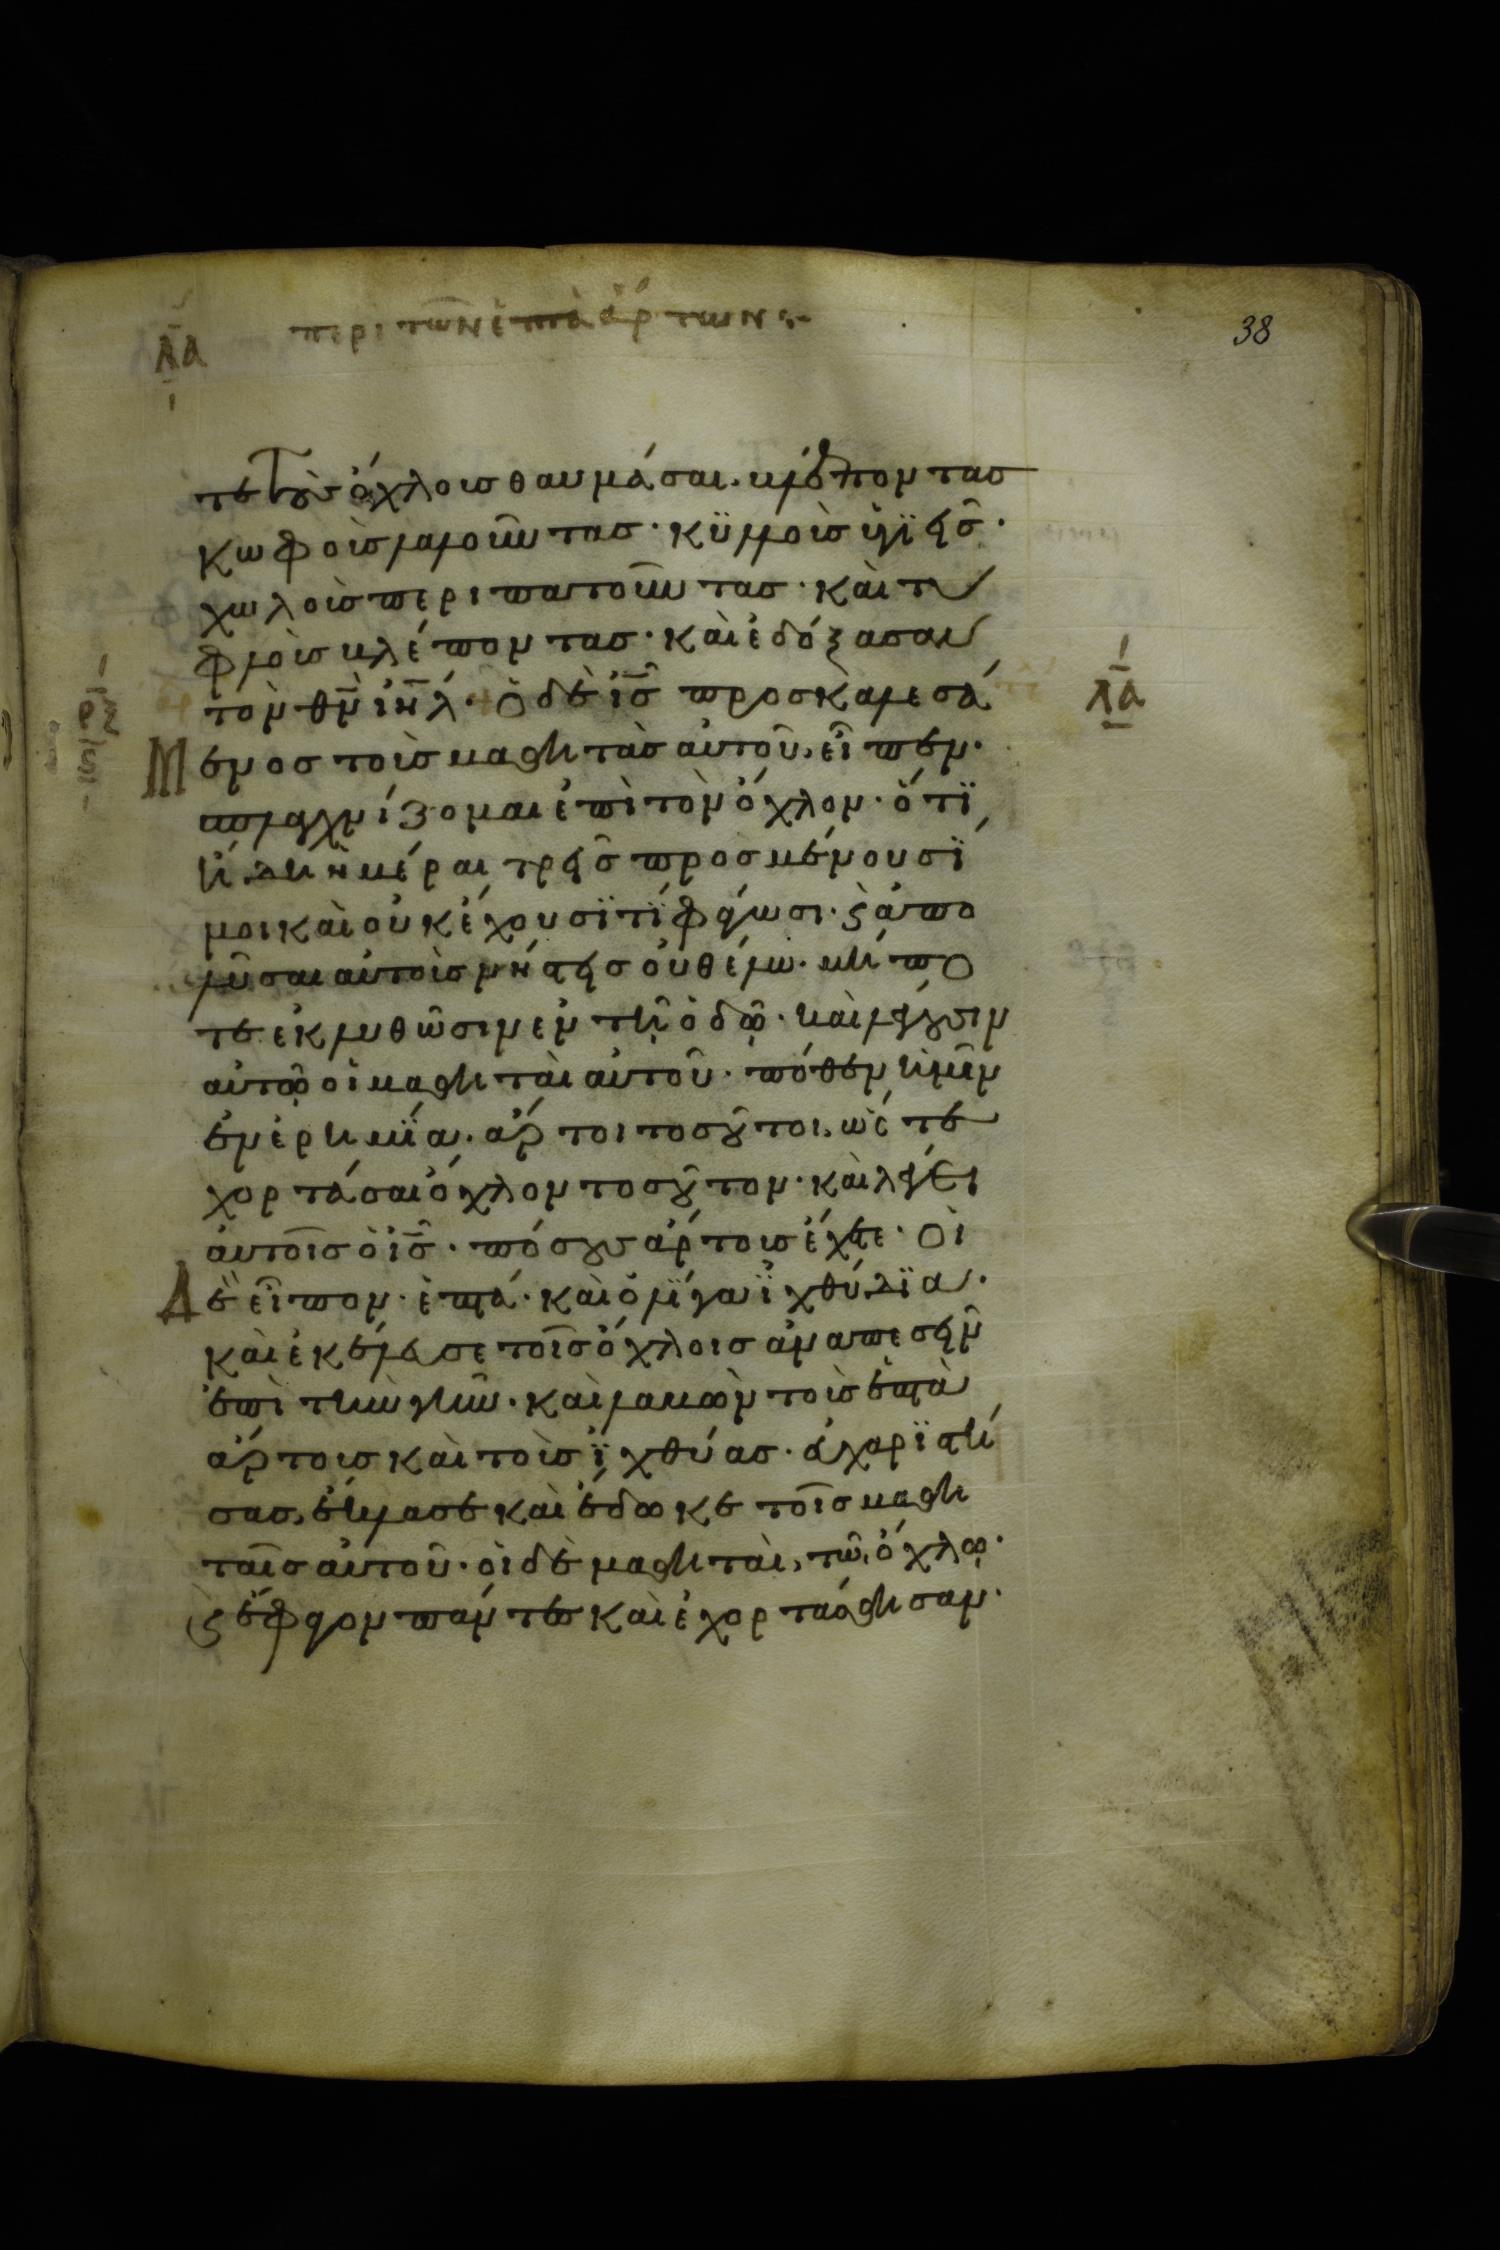 λα περὶ τῶν ἑπτὰ ἄρτων
38
τε τοὺς ὄχλους θαυμάσαι. βλέποντας
κωφοὺς λαλοῦντας· κυλλοὺς ὑγιεῖς·
χωλοὺς περιπατοῦντας· καὶ τυ
φλοὺς βλέποντας· καὶ ἐδόξασαν
τὸν θν ιηλ· Ὁ δὲ ις προσκαλεσά
λα
ρξ
μενος τοὺς μαθητὰς αὐτοῦ, εἶπεν·
σπλαγχνίζομαι ἐπὶ τὸν ὄχλον· ὅτι
ἤδη ἡμέραι τρεῖς προσμένουσί
μοι καὶ οὐκ ἔχουσι τί φάγωσι· καὶ ἀπο
λῦσαι αὐτοὺς νήστεις οὐ θέλω· μήπο
τε ἐκλυθῶσιν ἐν τῇ ὁδῷ· καὶ λέγουσιν
αὐτῷ οἱ μαθηταὶ αὐτοῦ· πόθεν ἡμῖν
ἐν ἐρημία. ἄρτοι τοσοῦτοι, ὥστε
χορτάσαι ὄχλον τοσοῦτον· καὶ λέγει
αὐτοῖς ὁ ις· πόσους ἄρτους ἔχετε· Οἱ
δὲ εἶπον· ἑπτά· καὶ ὀλίγα ἰχθύδια·
καὶ ἐκέλευσε τοῖς ὄχλοις ἀναπεσεῖν
ἐπὶ τὴν γῆν· καὶ λαβὼν τοὺς ἑπτὰ
ἄρτους καὶ τοὺς ἰχθύας· εὐχαριστή
σας, ἔκλασε καὶ ἔδωκε τοῖς μαθη
ταῖς αὐτοῦ· οἱ δὲ μαθηταὶ, τῷ ὄχλῳ·
καὶ ἔφαγον πάντες καὶ ἐχορτάσθησαν·